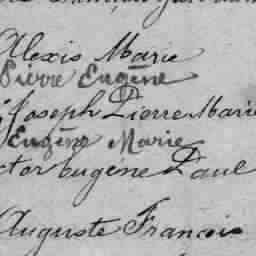 Alexis Marie
Pierre Eugène
Joseph Pierre Marie
Eugène Marie
ctor Eugène Paul
Auguste François